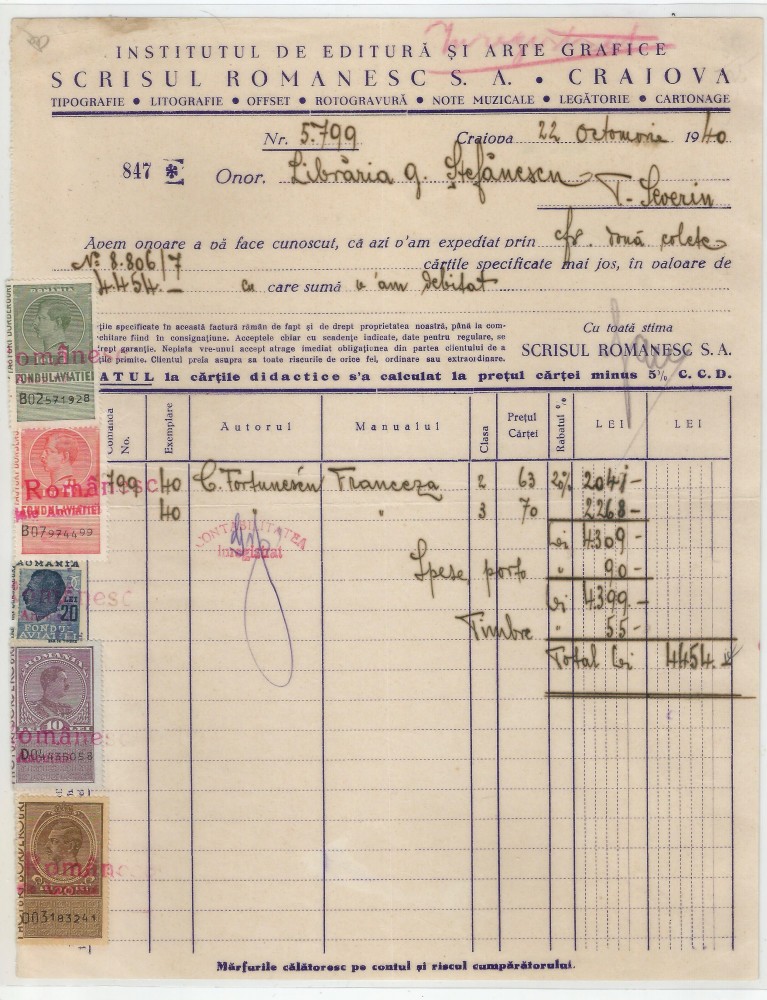 Inregistrat
INSTITUTUL DE EDITURĂ ȘI ARTE GRAFICE
SCRISUL ROMANESC S. A. • CRAIOVA
TIPOGRAFIE • LITOGRAFIE • OFFSET • ROTOGRAVURĂ • NOTE MUZICALE • LEGĂTORIE • CARTONAGE
Nr. 5.799 Craiova 22 Octomvrie 1940
847 Onor. Librăria G. Ștefănescu
T-Severin
Avem onoare a vă face cunoscut, că azi v'am expediat prin cfr. două colete
No 8.806/7 cărțile specificate mai jos, în valoare de
4.454.- cu care sumă v'am debitat
țile specificate în această factură rămân de fapt și de drept proprietatea noastră, până la com-
chitare fiind în consignațiune. Acceptele chiar cu scadențe indicate, date pentru regulare, se
drept garanție. Neplata vre-unui accept atrage imediat obligațiunea din partea clientului de a
țile primite. Clientul preia asupra sa toate riscurile de orice fel, ordinare sau extraordinare.
Cu toată stima
SCRISUL ROMÂNESC S. A.
ATUL la cărțile didactice s'a calculat la prețul cărței minus 5% C. C. D.
Comanda No. Exemplare Autorul Manualul Clasa Prețul Cărței Rabatul % LEI LEI
799 40 C. Fortunescu Franceza 2 63 20% 2041-
40 " " 3 70 2268-
Lei 4309-
Spese porto " 90-
Lei 4399.-
Timbre " 55-
Total Lei 4454.-
CONTABILITATEA
Inregistrat
FONDUL AVIATIEI
B02571928
Românesc
AVIATIEI
B07974499
ROMANIA
20
FOND
AVIATIEI
ROMANIA
10 LEI
Românesc
003183241
Mărfurile călătoresc pe contul și riscul cumpărătorului.